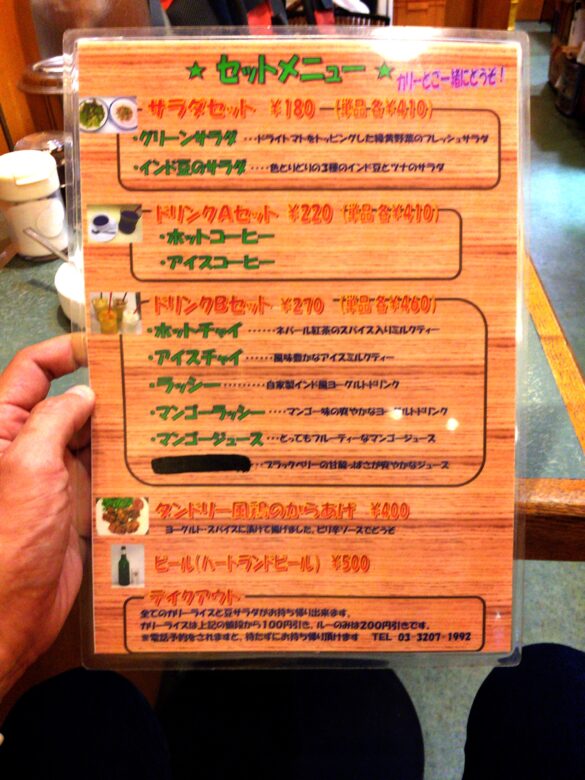 ★ セットメニュー ★
カリーとご一緒にどうぞ!
サラダセット ¥180 (単品各¥410)
・グリーンサラダ ・・・ドライトマトをトッピングした緑黄野菜のフレッシュサラダ
・インド豆のサラダ ・・・・色とりどりの3種のインド豆とツナのサラダ
ドリンクAセット ¥220 (単品各¥410)
・ホットコーヒー
・アイスコーヒー
ドリンクBセット ¥270 (単品各¥460)
・ホットチャイ ・・・・・・ネパール紅茶のスパイス入りミルクティー
・アイスチャイ ・・・・・・風味豊かなアイスミルクティー
・ラッシー ・・・・・・・・・自家製インド風ヨーグルトドリンク
・マンゴーラッシー ・・・・マンゴー味の爽やかなヨーグルトドリンク
・マンゴージュース ・・・とってもフルーティーなマンゴージュース
・・・ブラックベリーの甘酸っぱさが爽やかなジュース
タンドリー風鶏のからあげ ¥400
ヨーグルト・スパイスに漬けて揚げました、ピリ辛ソースでどうぞ
ビール(ハートランドビール) ¥500
テイクアウト
全てのカリーライスと豆サラダがお持ち帰り出来ます。
カリーライスは上記の値段から100円引き、ルーのみは200円引きです。
※電話予約をされますと、待たずにお持ち帰り頂けます TEL 03-3207-1992